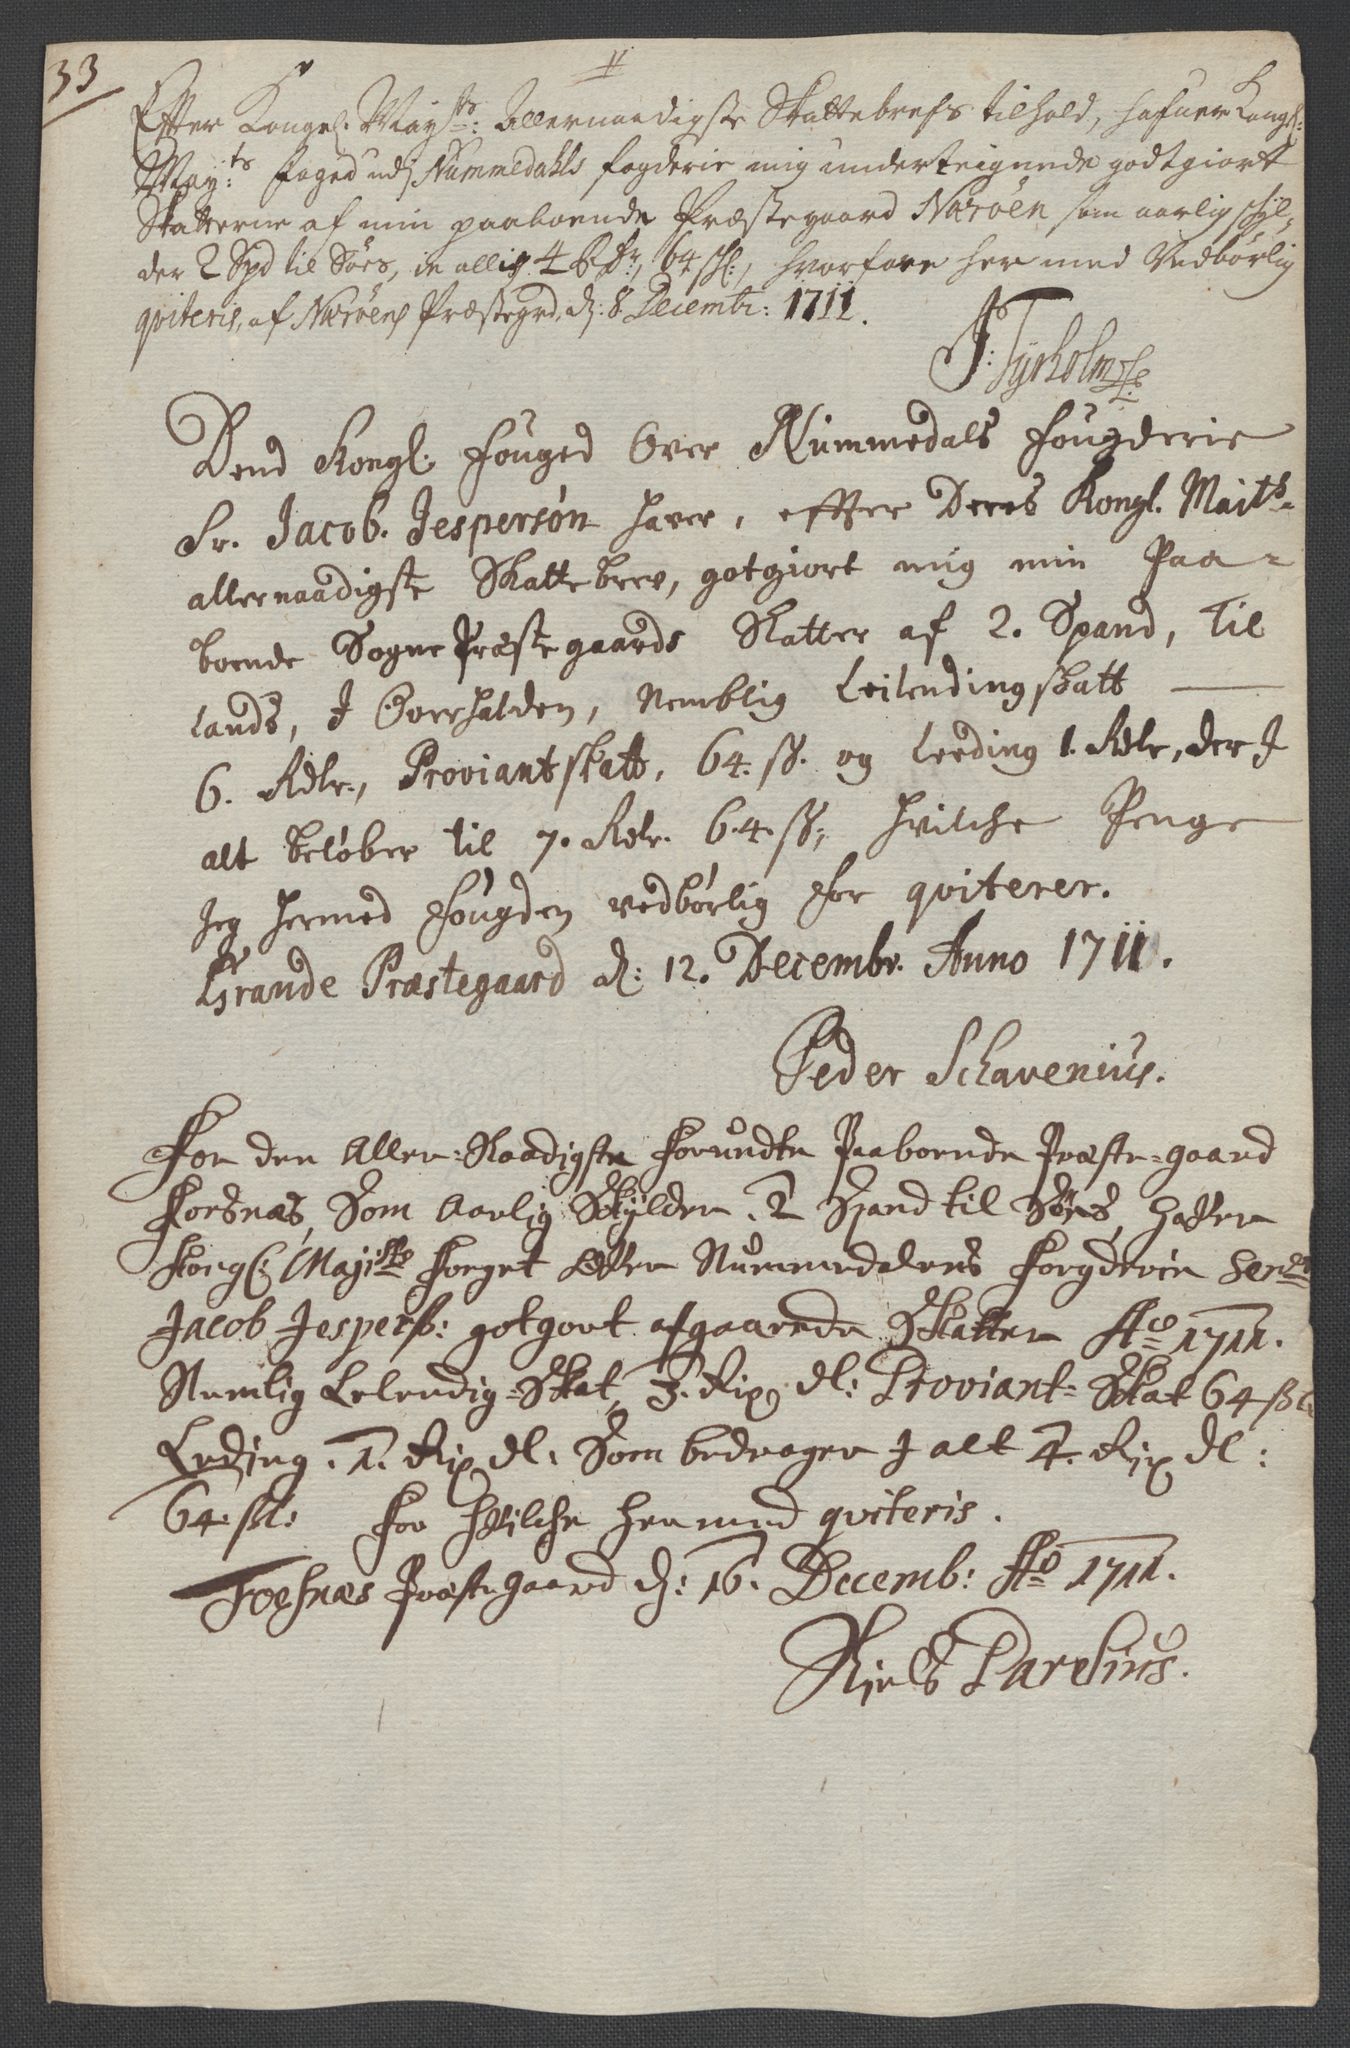 33
Efter Kongel. May:ts: Allernaadigste Skattebrefs tilhold, hafuer Kongl:
May:ts foged udj Nummedahls fogderie mig underteignede godtgiort
Skatterne af min paaboende Præstegaard Nærøen som aarlig schyl-
der 2 Spd til Søes, in allis 4 Rdr, 64 sk:, hvorfore her med Vedbørlig
qviteris, af Nærøens Præstegrd, d: 8 Decembr: 1711.
J: Tyrholm
Dend Kongl. Fouged Over Nummedals Fougderie
Sr. Jacob. Jespersøn haver, effter Deres Kongl. Maits
allernaadigste Skattebrev, gotgiort mig min Paa-
boende Sogne Præstegaards Skatter af 2. Spand, til
Lands, I Overhalden, Nemblig Leilendingskatt
6. Rdlr., Proviantskatt, 64. ss. og Leeding 1. Rdlr, der I
alt beløber til 7. Rdlr. 64. ss, hvilche Penge
Jeg hermed Fougden vedbørlig for qviterer.
Grande Præstegaard d: 12. Decembr. Anno 1711.
Peder Schavenius.
For den Aller-Naadigste Forundte Paaboende Præste-gaard
Forsnæs, Som Aarlig Skylder. 2 Spand til Søes, Hafver
Kongl: Majtts Foeget Ofver Nummedalens Forgderie Seig.r
Jacob Jesperss: gotgort afgaaende Skatter Ao 1711.
Nemlig Lelendig-Skat, 3. Rix dl: Proviant-Skat 64 ss
Leding. 1. Rix dl: Som bedrager I alt 4. Rix dl:
64. skl: For hvilche hermed qviteris.
Foesnæs Præstegaard d: 16. Decemb: Ao 1711.
Niels Parelius.